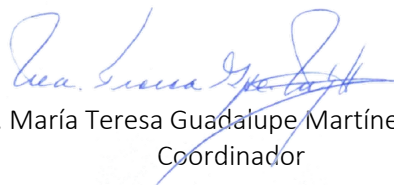 . María Teresa Guadalupe Martíne
Coordinador